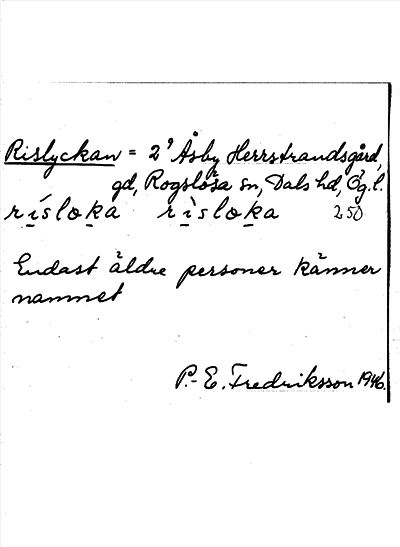 Rislyckan = 2' Åsby Herrstrandsgård,
gd, Rogslösa sn, Dals hd, Ög. l.
rísloka rìsloka 250
Endast äldre personer känner
namnet
P.-E. Fredriksson 1946.